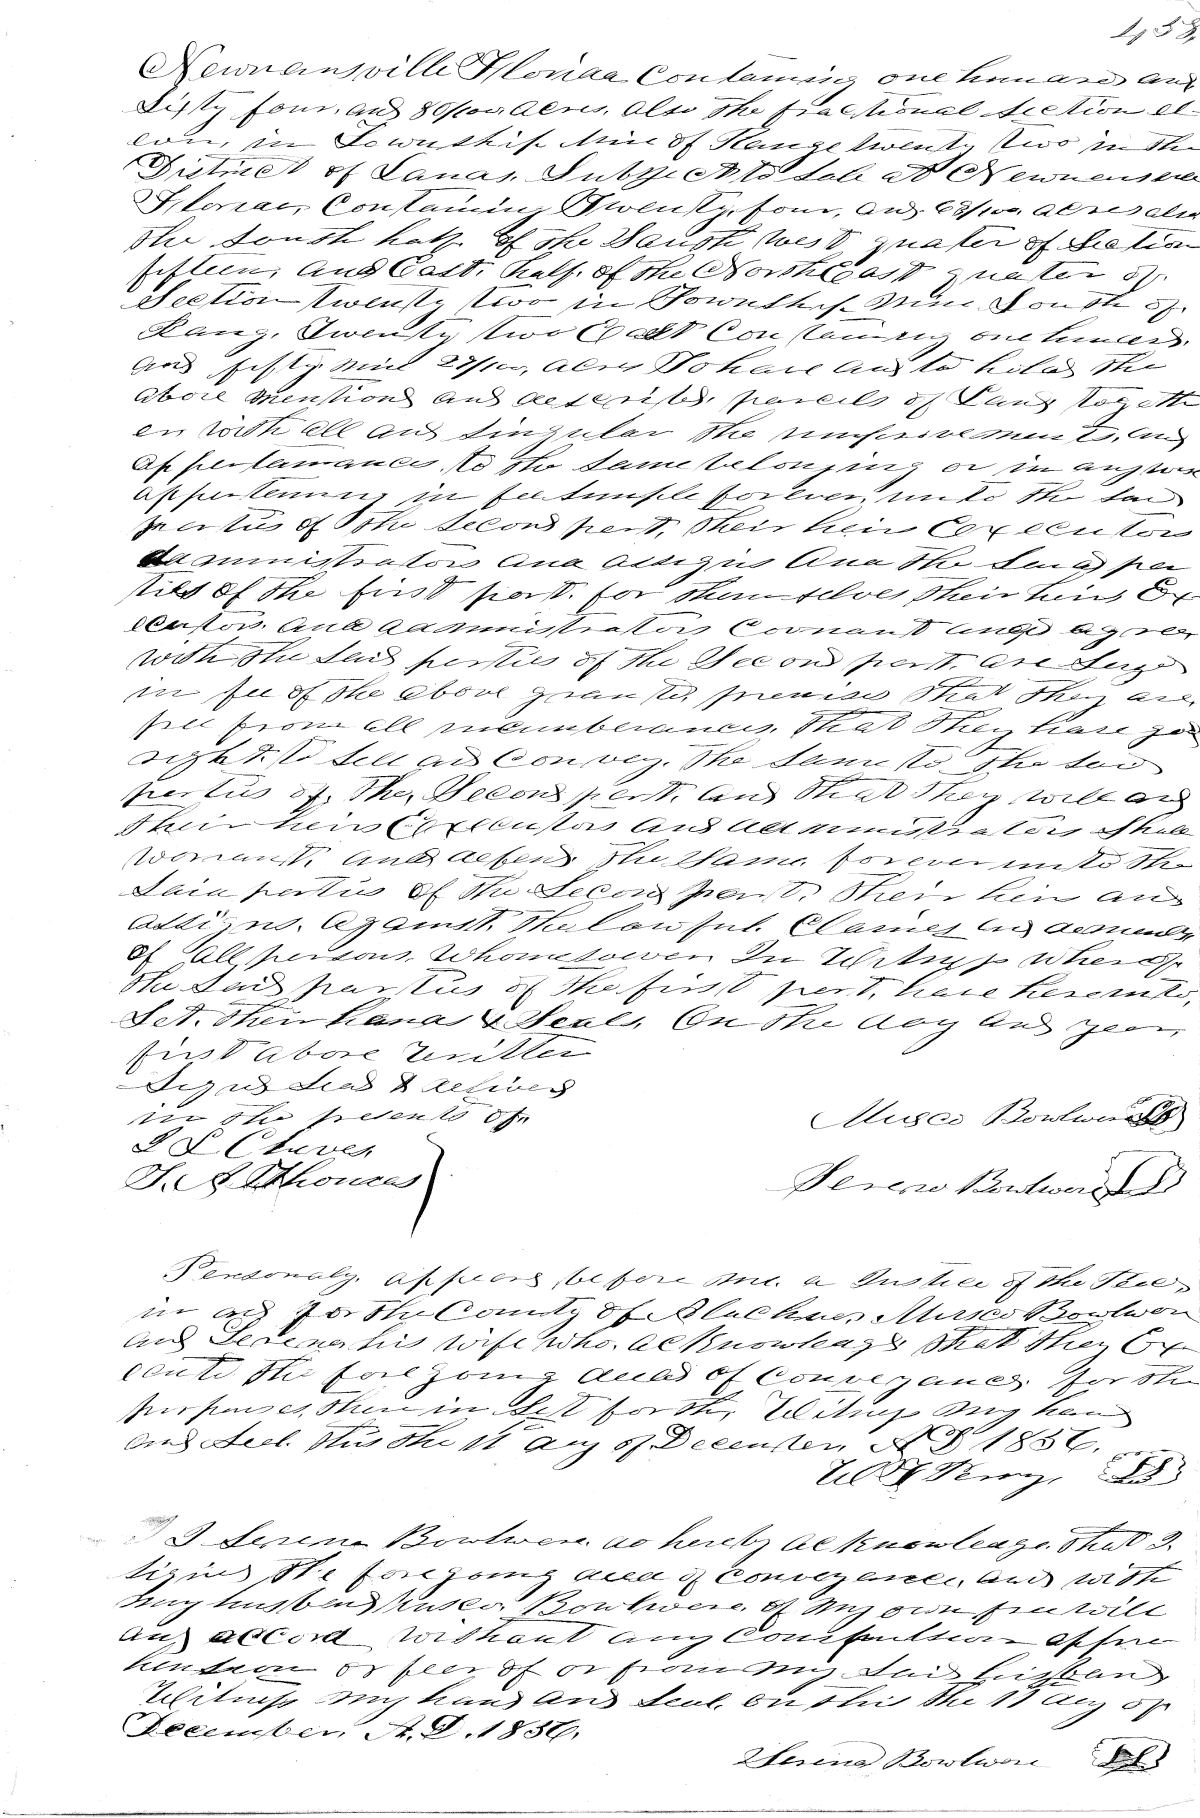 438
Newnansville Florida Containing one hundred and
Sixty four, and 80/100 acres, also the fractional Section el-
even, in Township Nine of Range twenty two in the
District of Lands, Subject to Sale at Newnansville
Florida, Containing Twenty, four, and 63/100 acres also
the South half. of the South West quater of Section
fifteen, and East, half. of the North East quater of.
Section twenty two in Township Nine South of.
Rang, Twenty two East Containing one hundred,
and fifty nine 27/100, acres To have and to hold the
above mentiond and describd, parcels of Land togeth
er with all and singular the improvements, and
appertainances, to the same belonging or in any wise
appertaining in fee simple forever, unto the said
parties of the Second part, their heirs Executors
administrators and assigns And the Said par
ties of the first part, for themselves their heirs Ex
ecutors and administrators Covnant and agree
with the said parties of the Second part, are
in fee of the above granted, premises that they are,
free from all incumberances, that they have
right, to sell and Convey, the same to the said
parties of, the, Second part, and that they will and
their heirs Executors and administrators Shall
warrant, and defend the same forever unto the
said parties of the Second part, their heirs and
assigns, against, the lawful Claimes and demands
of all persons, whomesoever In Witness whereof
the Said parties of the first part, have hereunto,
Set, their hands & Seals, On the day and year,
first above written
Signd Seald & delived
in the presents of
L Cluves
T. A Thomas
Musco Bowlware LS
Sereno Bowlware LS
Personaly, appeard, before me, a Justice of the Peace,
in and for the County of Alachua, Musco Bowlware
and Serena, his wife, who, acknowledge that they Ex
ecuted the foregoing deed of Conveyance, for the
purposes, there in Set forth, Witness my hand
and Seal, this the 11th day of December, A D 1856.
W H Perry, LS
I Serena Bowlware do hereby acknowledge, that I.
signed the foregoing deed of Conveyance, and with
my husband Musco, Bowlware, of my own free will
and accord without any Compulsion appre
hension or fear of or from my said husband
Witness my hand and seal, on this the 11 day of
December, A.D. 1856.
Serena Bowlware LS